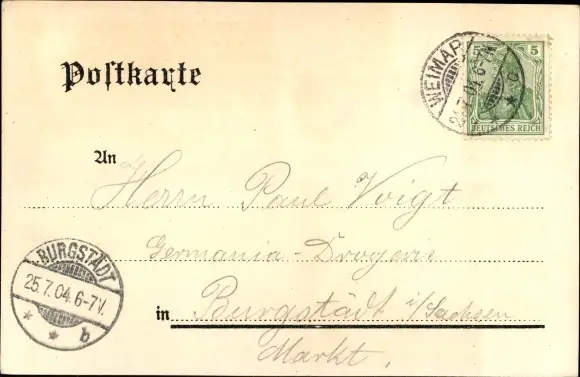 Postkarte
WEIMAR
24.7.04. 6-7N.
* * c
5 5
DEUTSCHES REICH
An
Herrn Paul Voigt
Germania-Drogerie
in Burgstädt i/Sachsen
Markt.
BURGSTÄDT
25.7.04. 6-7V.
* * b